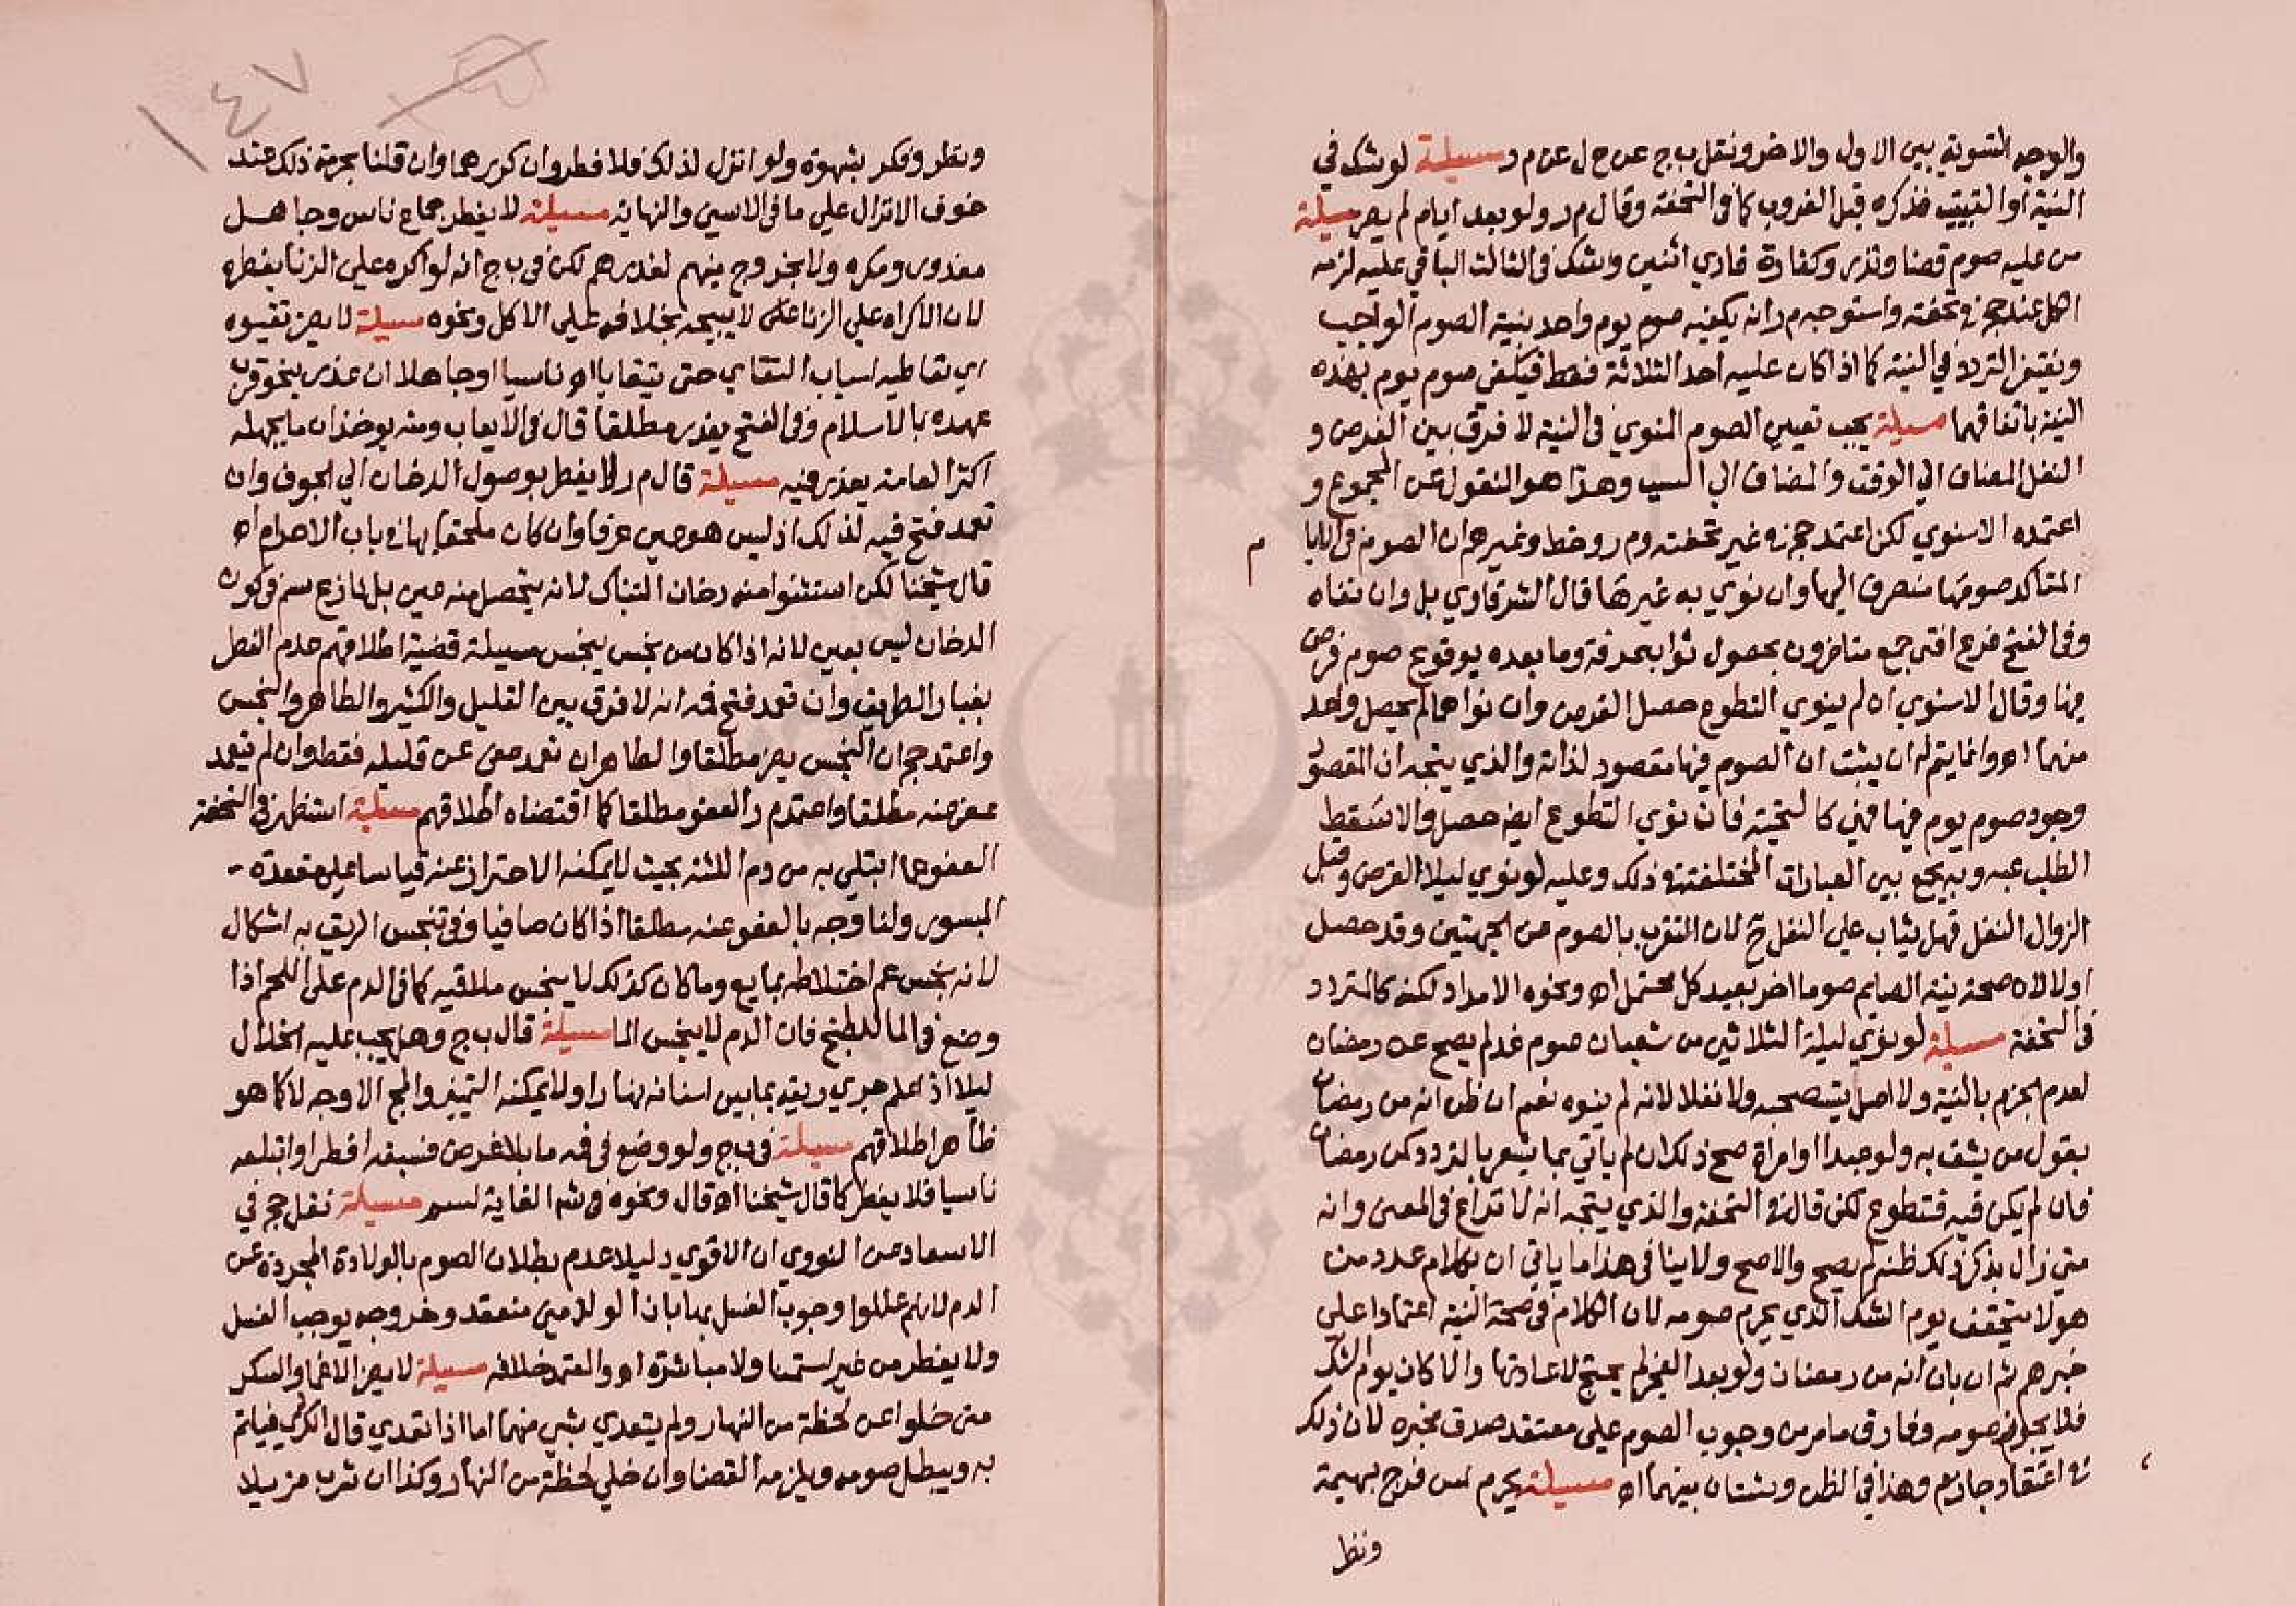 والوجه التسوية بين الاول والاخر ونقل ب ج عن ح ل عن م ر مسيلة لو شك في
النية او التبييت فذكره قبل الغروب كما في التحفة وقال م ر ولو بعد ايام لم يضر مسيلة
من عليه صوم قضا ونذر وكفارة فادي اثنين وشك في الثالث الباقي عليه لزمه
الكل عند حج في تحفته واستوجه م ر انه يكفيه صوم يوم واحد بنية الصوم الواجب
ويغتفر التردد في النية كما اذا كان عليه احد الثلاثة فقط فيكفي صوم يوم بهذه
النية باتفاقهما مسيلة يجب تعيين الصوم المنوي في النية لا فرق بين الفرض و
النفل المضاف الي الوقت والمضاف الي السبب وهذا هو المنقول عن المجموع و
اعتمده الاسنوي لكن اعتمد حج في غير تحفته وم ر وخط وغيرهم ان الصوم في الايام
المتاكد صومها منصرف اليها وان نوي به غيرها قال الشرقاوي بل وان نفاه
وفي الفتح فرع افتي جمع متاخرون بحصول ثواب عرفة وما بعده بوقوع صوم فرض
فيها وقال الاسنوي ان لم ينوي التطوع حصل الفرض وان نواهما لم يحصل واحد
منهما اه وانما يتم له ان يثبت ان الصوم فيها مقصود لذاته والذي يتجه ان المقصود
وجود صوم يوم فيها فهي كالتحية فان نوي التطوع ايض حصل والا سقط
الطلب عنه وبه يجمع بين العبارات المختلفة في ذلك وعليه لو نوي ليلا الفرض وقبل
الزوال النفل فهل يثاب علي النفل ح لان التقرب بالصوم من الجهتين وقد حصل
اولا لان صحة نية الصايم صوما اخر بعيد كل محتمل اه ونحوه الامداد لكنه كالمتردد
في التحفة مسيلة لو نوي ليلة الثلاثين من شعبان صوم غد لم يصح عن رمضان
لعدم الجزم بالنية ولا اصل يستصحبه ولا نفلا لانه لم ينوه نعم ان ظن انه من رمضان
بقول من يثق به ولو عبدا او امراة صح ذلك ان لم ياتي بما يشعر بالتردد كمن رمضان
فان لم يكن فيه فتطوع لكن قال في التحفة والذي يتجه انه لا نزاع في المعني وانه
متي زال بذكر ذلك ظنه لم يصح والا صح ولا ينافي هذا ما ياتي ان بكلام عدد من
هولا يتحقق يوم الشك الذي يحرم صومه لان الكلام في صحة النية اعتمادا علي
خبرهم ثم ان بان انه من رمضان ولو بعد الفجر لم يحتج لاعادتها والا كان يوم الشك
فلا يجوز صومه وفارق ما مر من وجوب الصوم علي معتقد صدق مخبره لان ذلك
في اعتقاد جازم وهذا في الظن وشتان بينهما اه مسيلة يحرم لمس فرج بهيمة
ونظر
١٤٧
ونظر وفكر بشهوة ولو انزل لذلك فلا فطر وان كررهما وان قلنا بحرمة ذلك عند
خوف الانزال علي ما في الاسني والنهاية مسيلة لا يفطر جماع ناس وجاهل
معذور ومكره ولا بخروج منيهم لعذرهم لكن في ب ج انه لو اكره علي الزنا يفطر
لان الاكراه علي الزنا لا يبيحه بخلافه علي الاكل ونحوه مسيلة لا يضر تقيوه
اي تعاطيه اسباب التقاي حتي يتقايا اه ناسيا او جاهلا ان عذر بنحو قرب
عهده بالاسلام وفي الفتح يعذر مطلقا قال في الايعاب ومنه يوخذ ان ما يجهله
اكثر العامة يعذر فيه مسيلة قال م ر لا يفطر بوصول الدخان الي الجوف وان
تعمد فتح فيه لذلك اذ ليس هو عين عرفا وان كان ملحقا بها في باب الاحرام اه
قال شيخنا لكن استثنوا منه دخان التنباك لانه يتحصل منه عين بل نازع سم في كون
الدخان ليس بعين لانه اذا كان من نجس ينجس مسيلة قضية اطلاقهم عدم الفطر
بغبار الطريق وان تعمد فتح فمه انه لا فرق بين القليل والكثير والطاهر والنجس
واعتمد حج ان النجس يضر مطلقا والطاهر ان تعمد عفي عن قليله فقط وان لم يتعمد
عفي عنه مطلقا واعتمد م ر العفو مطلقا كما اقتضاه اطلاقهم مسيلة استظهر في التحفة
العفو عما ابتلي به من دم اللثة بحيث لا يمكنه الاحتراز عنه قياسا علي مقعدة
المبسور ولنا وجه بالعفو عنه مطلقا اذا كان صافيا وفي تنجس الريق به اشكال
لانه نجس عم اختلاطه بمايع وما كان كذلك لا ينجس ملاقيه كما في الدم علي اللحم اذا
وضع في الما للطبخ فان الدم لا ينجس الما مسيلة قال ب ج وهل يجب عليه الخلال
ليلا اذا علم جري ريقه بما بين اسنانه نهارا ولا يمكنه التمييز والمج الاوجه لا كما هو
ظاهر اطلاقهم مسيلة في ب ج ولو وضع في فمه ما بلا غرض فسبقه افطر او ابتلعه
ناسيا فلا يفطر كما قال شيخنا اه قال ونحوه في شرح الغاية لسم مسيلة نقل حج في
الاسعاد عن النووي ان الاقوي دليلا عدم بطلان الصوم بالولادة المجردة عن
الدم لانهم عللوا وجوب الغسل بها بان الولد مني منعقد وخروجه يوجب الغسل
ولا يفطر من غير استمنا ولا مباشرة اه والمعتمد خلافه مسيلة لا يضر الاغما والسكر
متي خلوا عن لحظة من النهار ولم يتعدي بشي منهما اما اذا تعدي قال الكردي فياثم
به ويبطل صومه ويلزمه القضا وان خلي لحظة من النهار وكذا ان شرب مزيلا